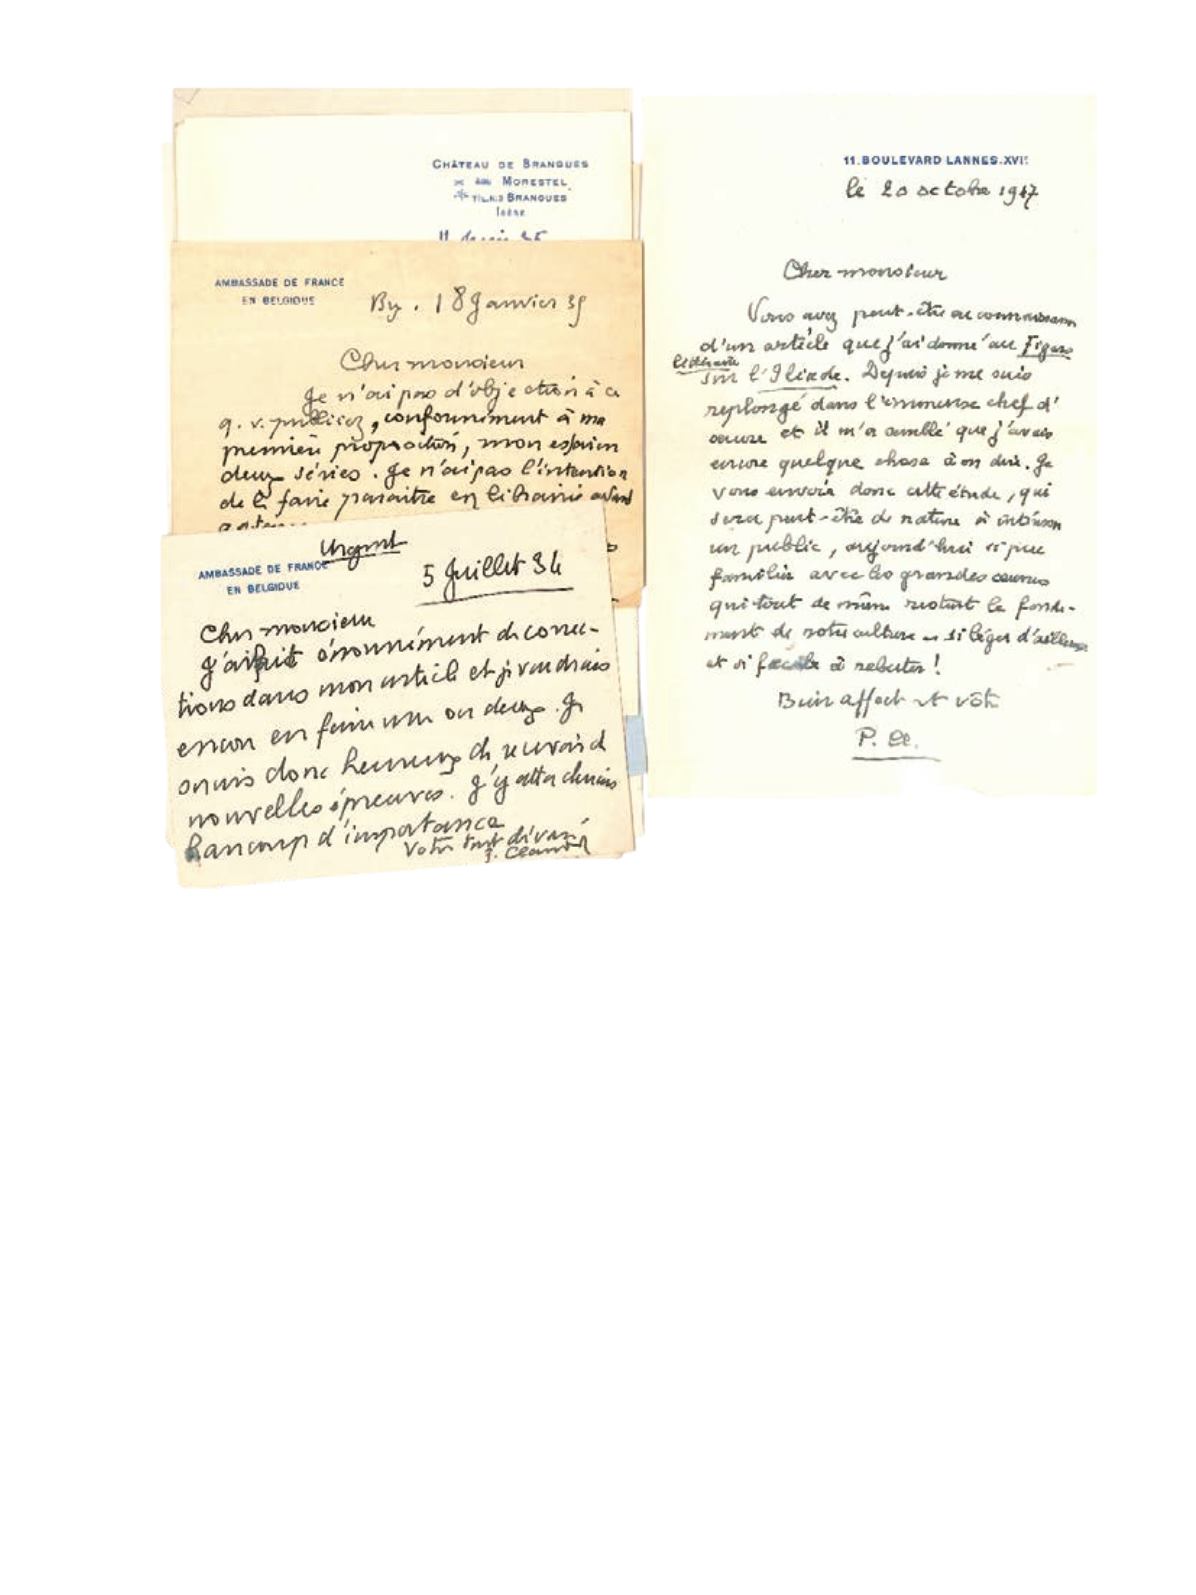 CHÂTEAU DE BRANGUES
MORESTEL
BRANGUES
Isère
AMBASSADE DE FRANCE
EN BELGIQUE
18 Janvier 35
Cher monsieur
Je n'ai pas d'objection à ce
q. v. publiez, conformément à ma
première proposition, mon essai en
deux séries. Je n'ai pas l'intention
de le faire paraître en librairie avant
Urgent
AMBASSADE DE FRANCE
EN BELGIQUE
5 Juillet 34
Cher monsieur
J'ai fait énormément de correc-
tions dans mon article et je voudrais
encore en faire une ou deux. Je
serais donc heureux de recevoir de
nouvelles épreuves. J'y attacherais
beaucoup d'importance
Votre tout dévoué
P. Claudel
11. BOULEVARD LANNES. XVIE
le 20 octobre 1947
Cher monsieur
Vous avez peut-être eu connaissance
d'un article que j'ai donné au Figaro
littéraire
sur l'Iliade. Depuis je me suis
replongé dans l'immense chef d'
œuvre et il m'a semblé que j'avais
encore quelque chose à en dire. Je
vous envoie donc cette étude, qui
sera peut-être de nature à intéresser
un public, aujourd'hui si peu
familier avec les grandes œuvres
qui tout de même restent le fonde-
ment de notre culture si léger d'ailleurs
et si facile à rebuter !
Bien affect et vôtre
P. Cl.